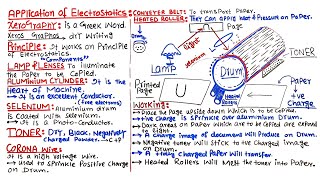 Application of Electrostatics:
XeroGRAPHY: Is a Greek Word.
Xeros Graphos DRY WRITING
PRINCIPLE: It works on Principle
of Electrostatics.
"Components"
LAMP & LENSES To illuminate
the Paper to be Copied.
ALUMINIUM CYLINDER: It is the
Heart of Machine.
It is an excellent Conductor.
(free electrons)
SELENIUM: Aluminium drum
is Coated with Selenium.
It is a Photo-Conductor.
TONER: DRY, Black, Negatively
Charged Powder.
CORONA WIRE:
It is a high Voltage Wire.
used to Sprinkle Positive charge
on Drum.
CONVEYER BELTS To transport Paper.
HEATED ROLLERS: They Can apply Heat & Pressure on Paper.
Light
Lamp
Drum
TONER
Printed
Page
PAPER
+ve
Charge
Working:
Place the Page upside down which is to be Copied.
+ve Charge is Sprinkle over aluminium Drum.
Dark areas on Paper which are to be Copied are exposed
to light.
A Charge Image of document will Produce on Drum.
Negative toner will stick to +ve charged Image
on Drum.
Heated Rollers will Melt the toner into Paper.